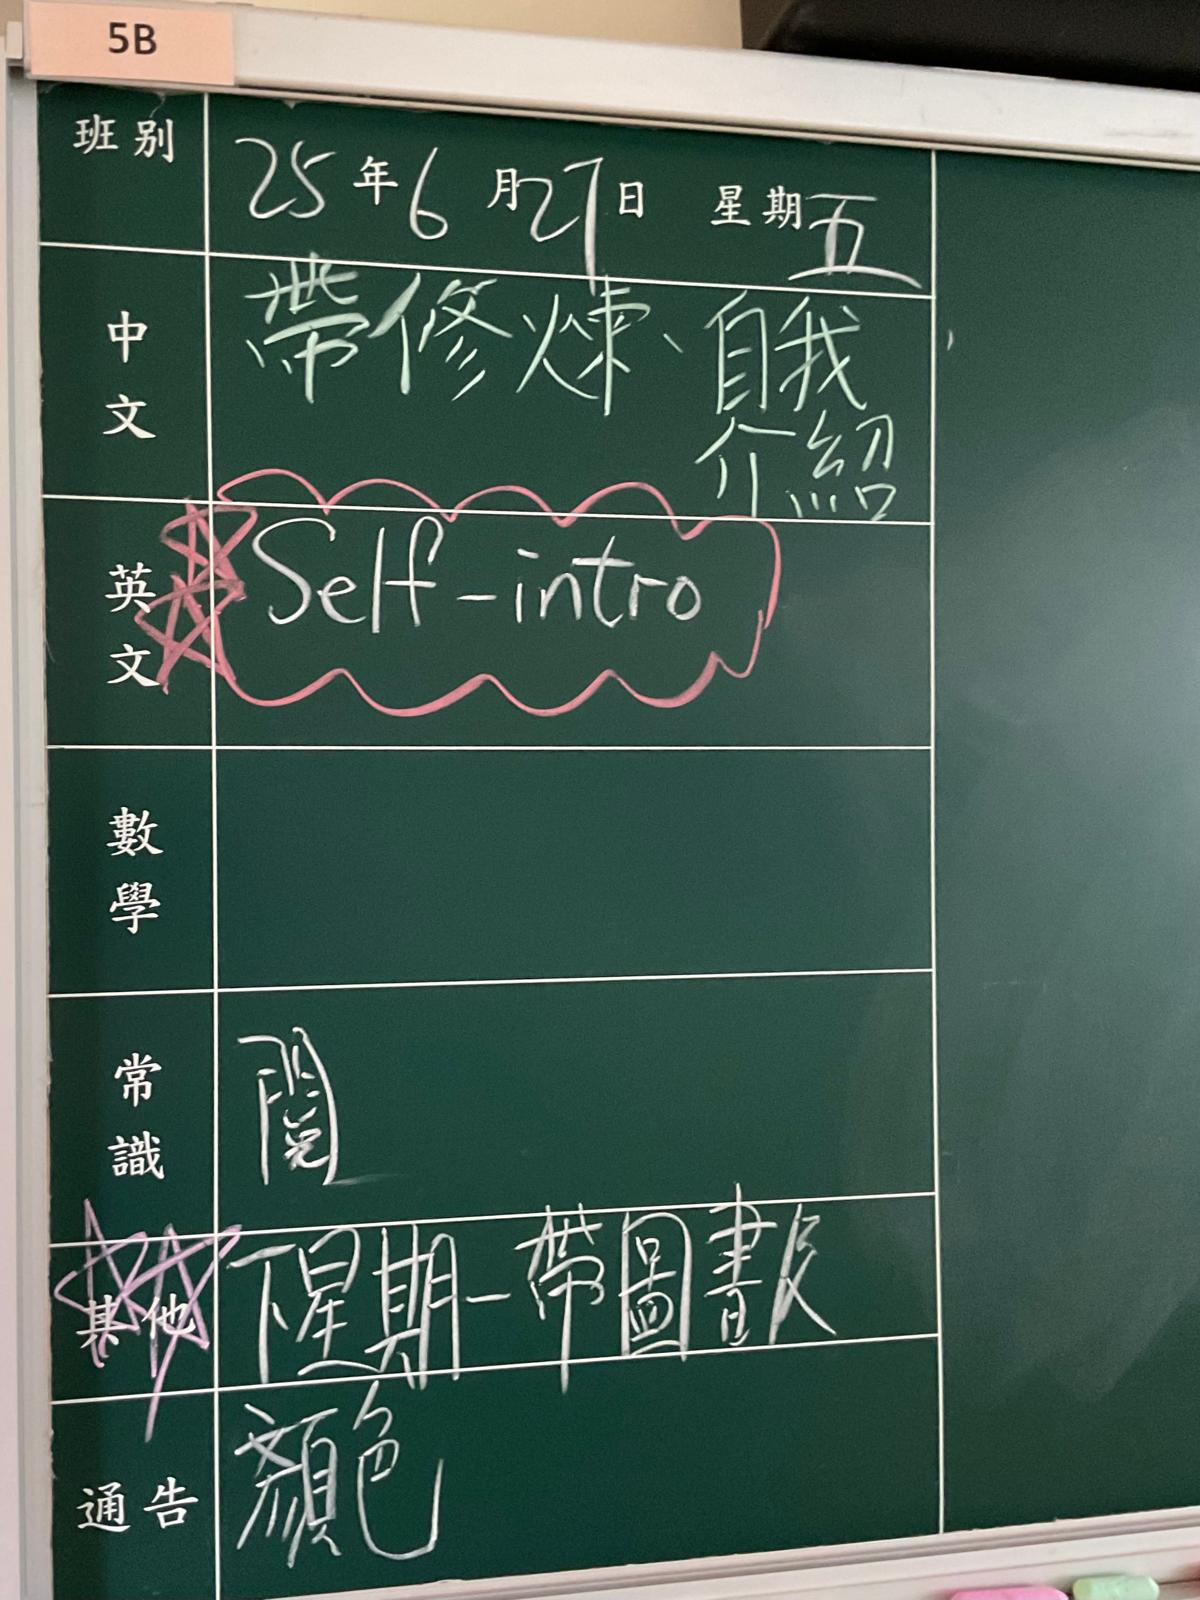 5B
班别 25年6月27日 星期五
中文 帶修煉、自我
介紹
英文 Self-intro
數學
常識 閱
其他 下星期一帶圖書及
通告 顏色